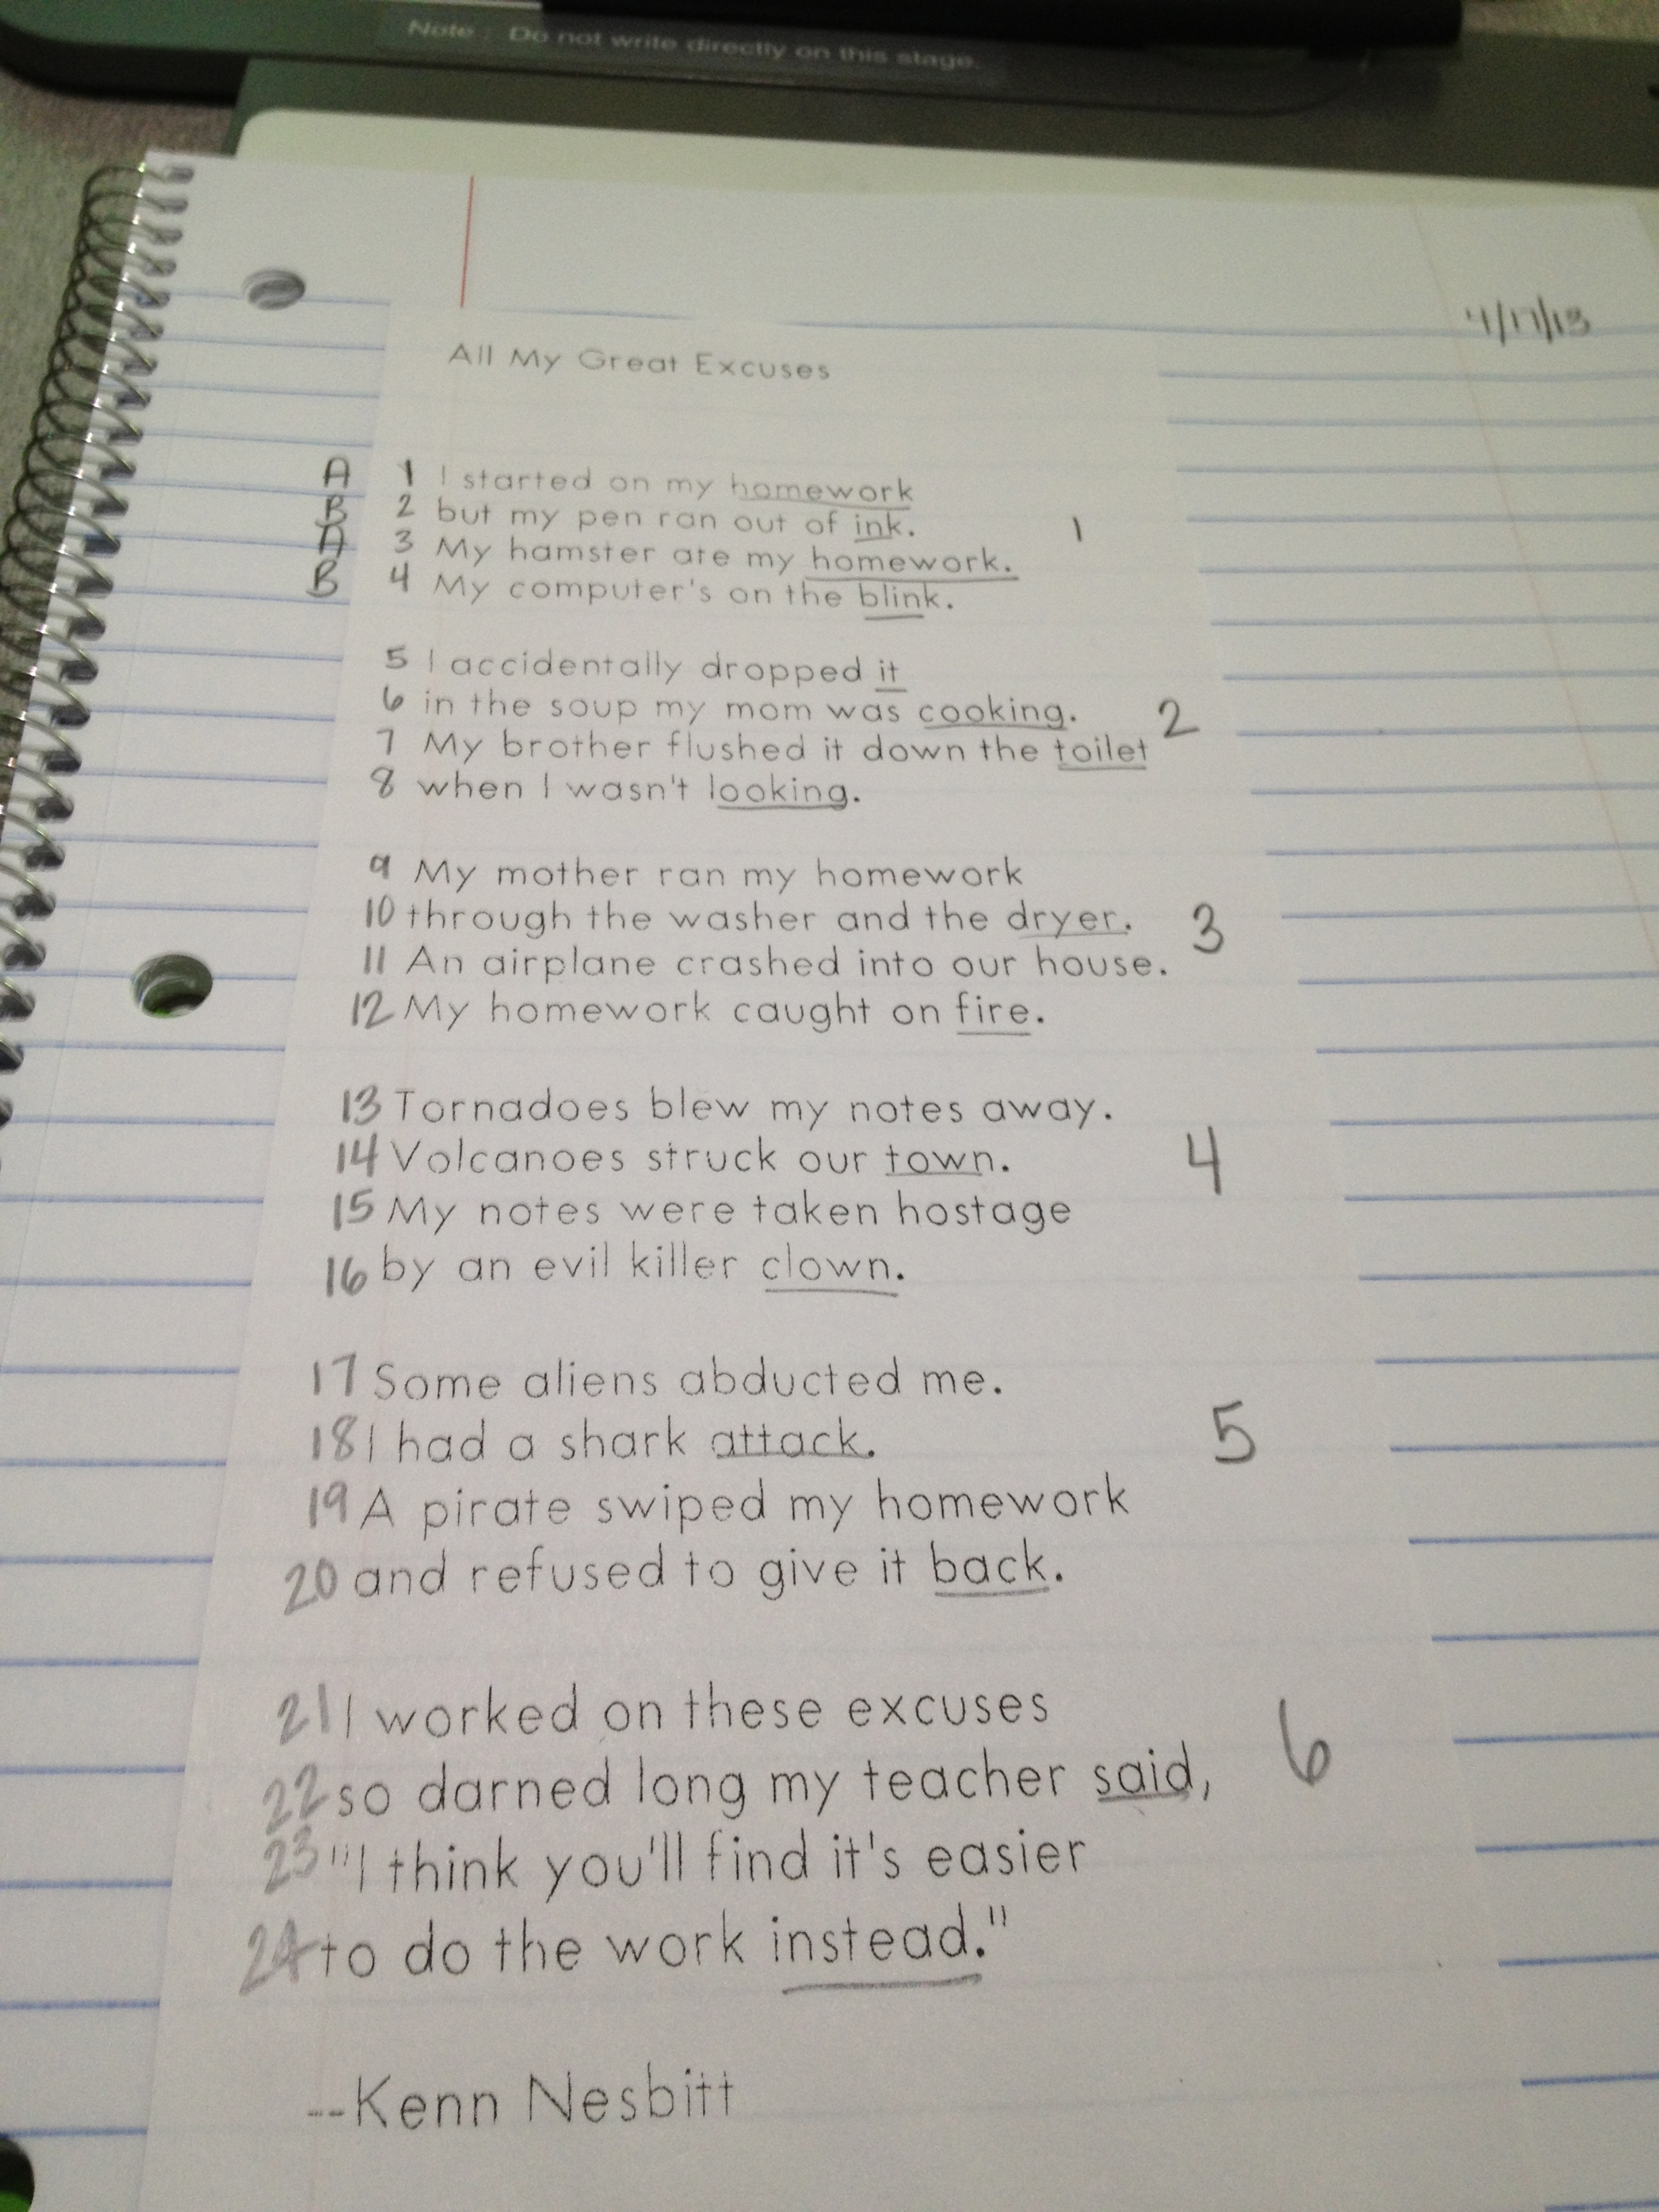 Note : Do not write directly on this stage.
4/17/13
All My Great Excuses
A 1 I started on my homework
B 2 but my pen ran out of ink. 1
A 3 My hamster ate my homework.
B 4 My computer's on the blink.
5 I accidentally dropped it
6 in the soup my mom was cooking. 2
7 My brother flushed it down the toilet
8 when I wasn't looking.
9 My mother ran my homework
10 through the washer and the dryer. 3
11 An airplane crashed into our house.
12 My homework caught on fire.
13 Tornadoes blew my notes away.
14 Volcanoes struck our town. 4
15 My notes were taken hostage
16 by an evil killer clown.
17 Some aliens abducted me.
18 I had a shark attack. 5
19 A pirate swiped my homework
20 and refused to give it back.
21 I worked on these excuses
22 so darned long my teacher said, 6
23 "I think you'll find it's easier
24 to do the work instead."
--Kenn Nesbitt